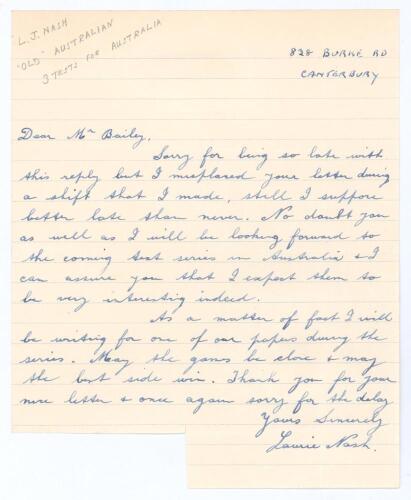 L. J. NASH
"OLD" AUSTRALIAN
3 TESTS FOR AUSTRALIA
828 BURKE RD
CANTERBURY
Dear Mr Bailey,
Sorry for being so late with
this reply but I misplaced your letter during
a shift that I made, still I suppose
better late than never. No doubt you
as well as I will be looking forward to
the coming test series in Australia & I
can assure you that I expect them to
be very interesting indeed.
As a matter of fact I will
be writing for one of our papers during the
series. May the games be close & may
the best side win. Thank you for your
nice letter & once again sorry for the delay
Yours Sincerely
Laurie Nash.